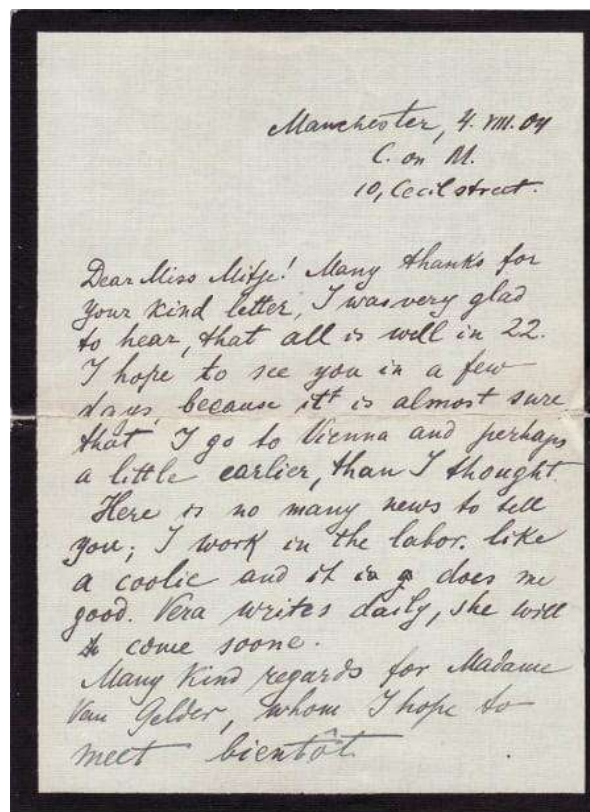 Manchester, 4. VIII. 04
C. on M.
10, Cecil street.
Dear Miss Mitje! Many thanks for
your kind letter, I was very glad
to hear, that all is well in 22.
I hope to see you in a few
days, because it is almost sure
that I go to Vienna and perhaps
a little earlier, than I thought.
Here is no many news to tell
you; I work in the labor. like
a coolie and it does me
good. Vera writes daily, she will
come soone.
Many kind regards for Madame
Van Gelder, whom I hope to
meet bientôt.